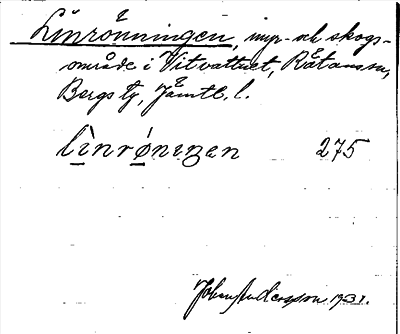 Linrönningen, myr- och skogs-
område i Vitvattnet, Rätans sn,
Bergs tg, Jämtl. l.
lìnrǿniŋen 275
John Andersson 1931.